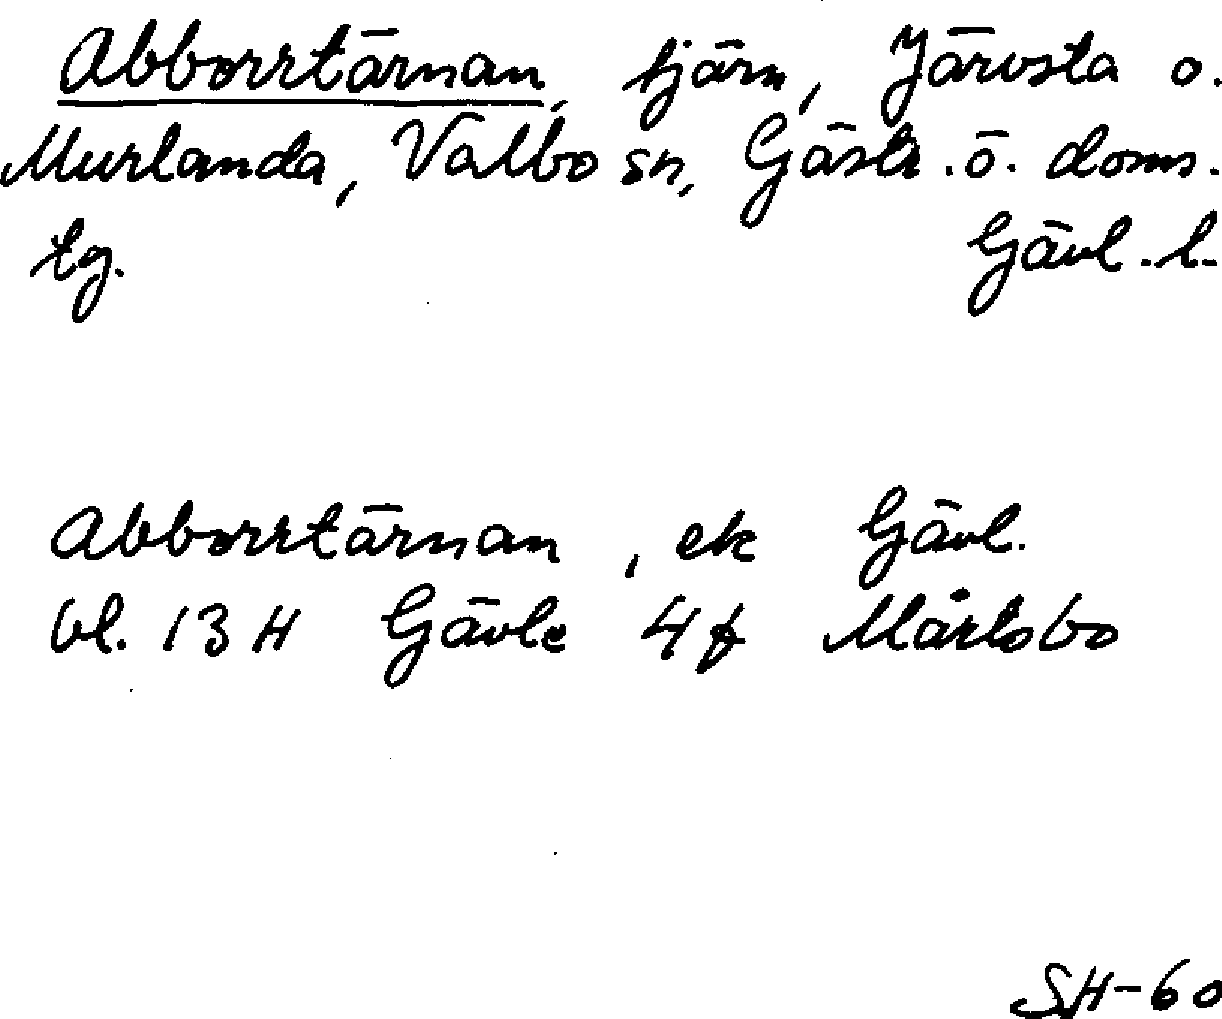 Abborrtärnan, tjärn, Järvsta o.
Murlanda, Valbo sn, Gästr. ö. doms.
tg. Gävl. l.
Abborrtärnan, ek Gävl.
bl. 13 H Gävle 4 f Mårtsbo
SH-60